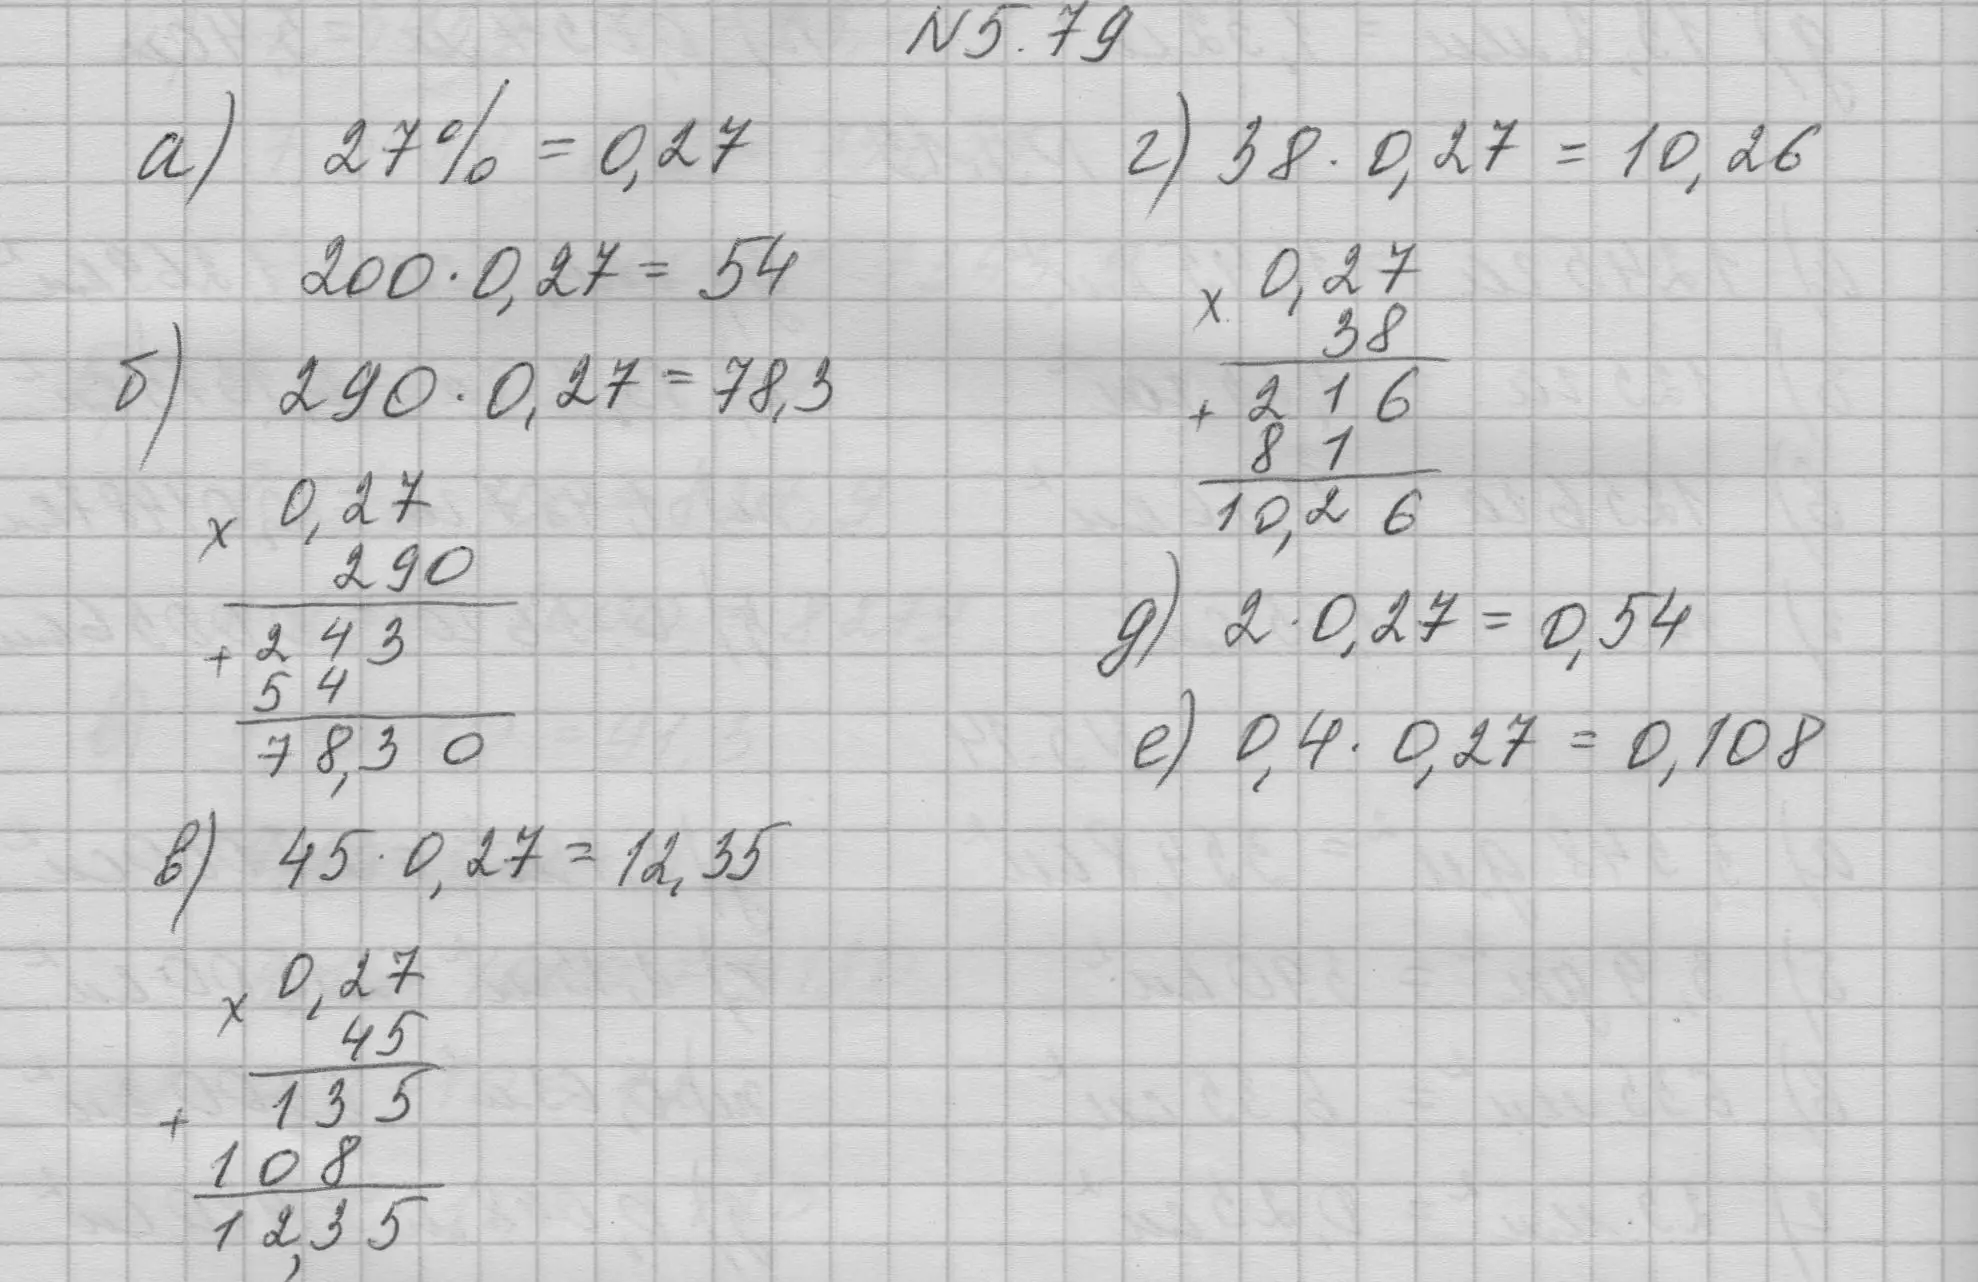 N5.79
а) 27% = 0,27
200·0,27 = 54
б) 290·0,27 = 78,3
x 0,27
290
+ 243
54
78,30
в) 45·0,27 = 12,35
x 0,27
45
+ 135
108
12,35
г) 38·0,27 = 10,26
x 0,27
38
+ 216
81
10,26
д) 2·0,27 = 0,54
е) 0,4·0,27 = 0,108